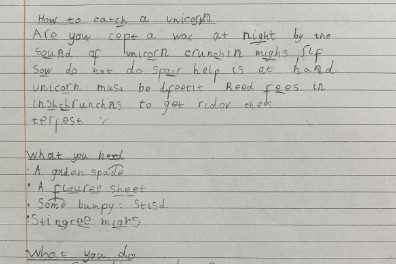 How to catch a unicorn
Are you cept a wac at night by the
sound of unicorn crunchin mighs If
sow do not do spair help is at hand
unicorn must be dfeerit Reed fees in
to get ridov them
What you need
A golden spade
A flauree sheet
Some bumpy
Stingree mighs
What you do